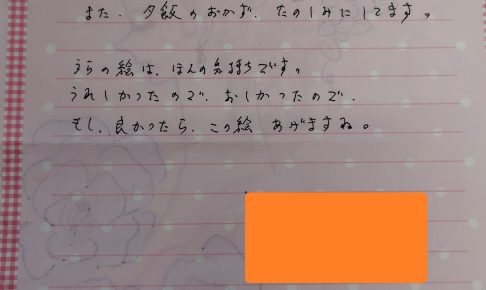 また、夕飯のおかず、たのしみにしてます。
うらの絵は、ほんの気持ちです。
うれしかったので、おしかったので、
もし、良かったら、この絵 あげますね。